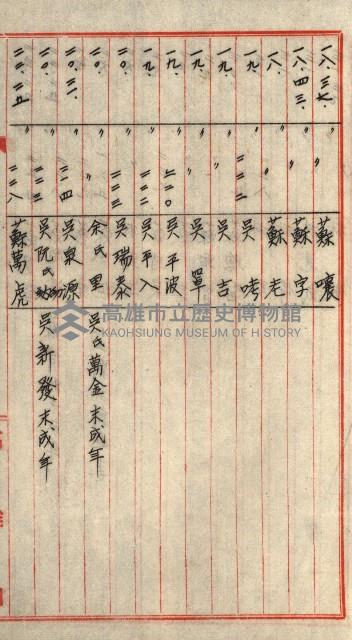 一八、三七、 〃 〃 蘇嚷
一八、四三、 〃 〃 蘇字
一八、 〃 〃 蘇老
一九、 〃 二二二 吳
一九、 〃 〃 吳吉
一九、 〃 〃 吳單
一九、 〃 二二〇 吳平波
一九、 〃 二二二 吳平入
二〇、 〃 二二三 吳瑞泰
二〇、 〃 〃 余氏里 吳氏萬金 未成年
二〇、二一、 〃 二一四 吳泉源
二〇、 〃 二二三 吳阮氏 吳新發 未成年
二二、二五 〃 二二八 蘇萬虎
高雄市立歷史博物館
KAOHSIUNG MUSEUM OF HISTORY